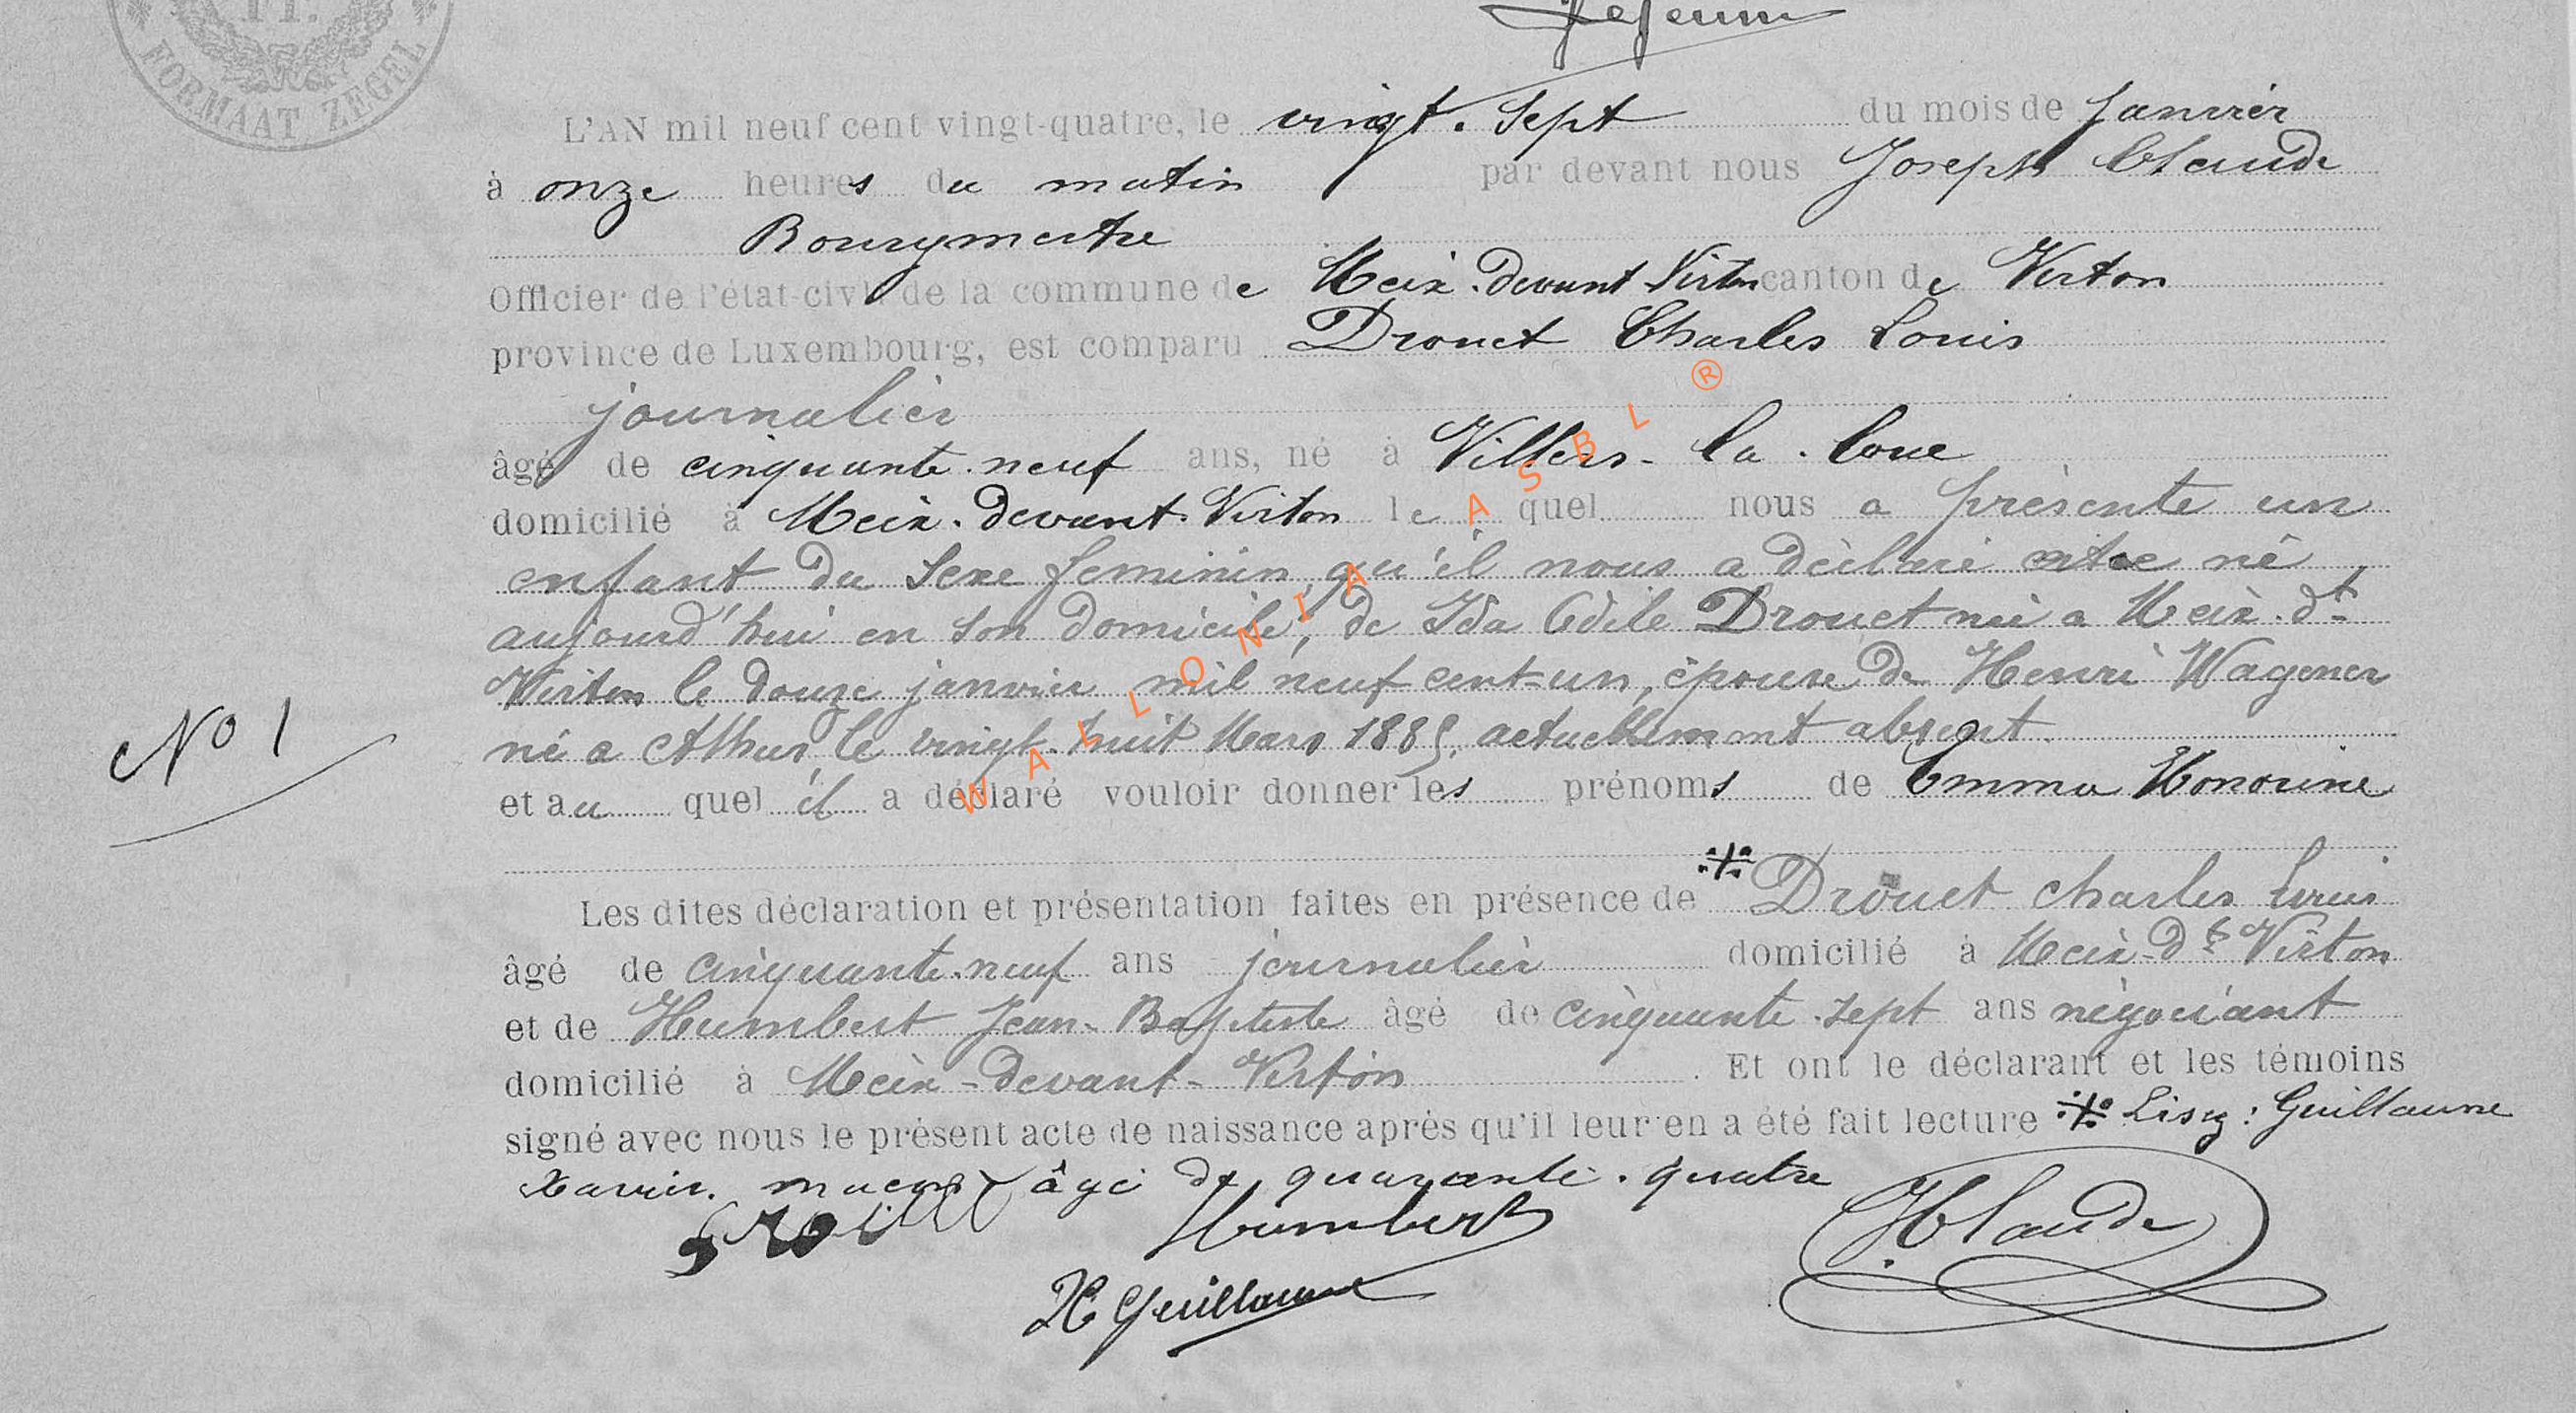 FORMAAT ZEGEL
Lejeune
L'AN mil neuf cent vingt-quatre, le vingt. Sept du mois de Janvier
à onze heures du matin par devant nous Joseph Claude
Bourgmestre
Officier de l'état-civil de la commune de Meix. devant Virton canton de Virton
province de Luxembourg, est comparu Drouet Charles Louis
journalier
âgé de cinquante. neuf ans, né à Villers- la. loue
domicilié à Meix. devant. Virton le quel nous a présenté un
enfant du sexe feminin, qu'il nous a déclaré être né
aujourd'hui en son domicile, de Ida Odile Drouet née a Meix. dt
Virton le douze janvier mil neuf cent-un, épouse de Henri Wagener
né a Athus, le vingt. huit Mars 1885, actuellement absent.
No 1
et au quel il a déclaré vouloir donner les prénoms de Emma Honorine
Les dites déclaration et présentation faites en présence de Drouet Charles Louis
âgé de cinquante. neuf ans journalier domicilié à Meix-dt Virton
et de Humbert Jean-Baptiste âgé de cinquante. sept ans négociant
domicilié à Meix-devant-Virton. Et ont le déclarant et les témoins
signé avec nous le présent acte de naissance après qu'il leur en a été fait lecture Lisez: Guillaume
Xavier. maçon âgé de quarante. quatre
Humbert JClaude
X Guillaume
WALLONIA ASBL ®